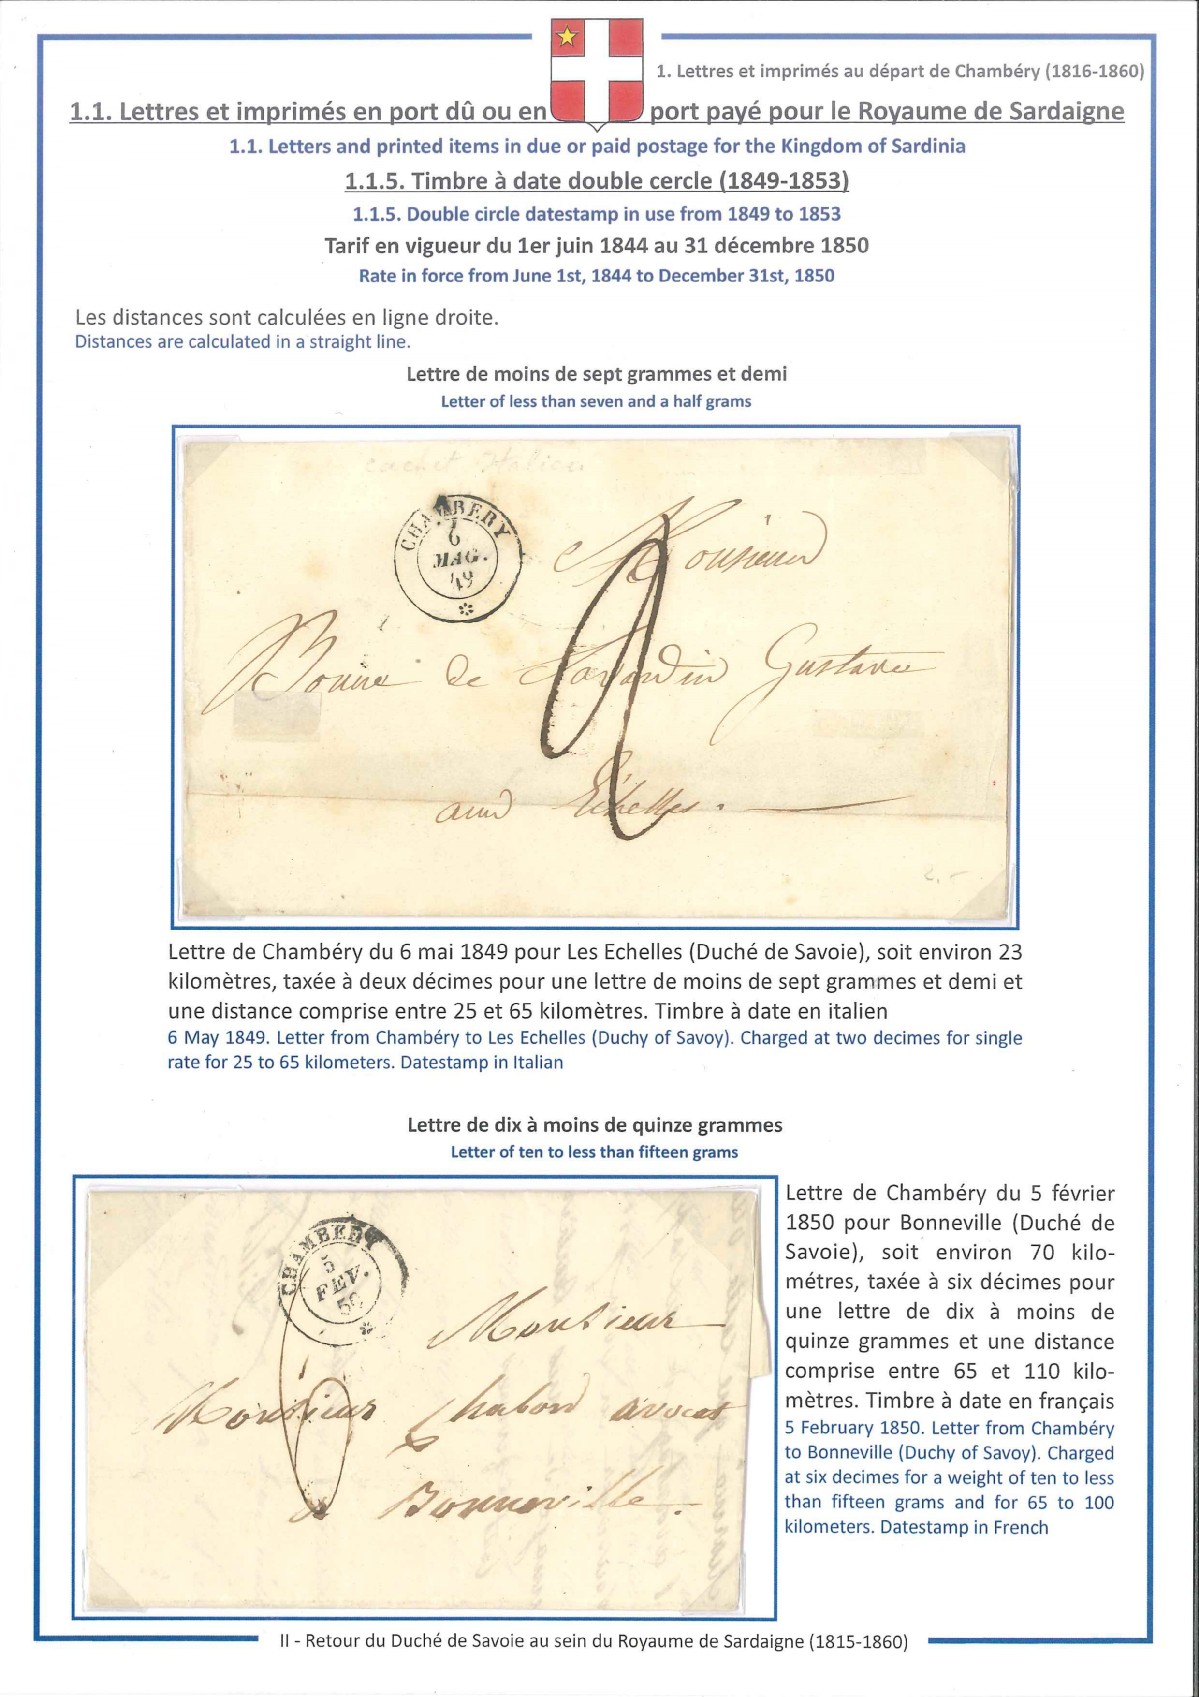 1. Lettres et imprimés au départ de Chambéry (1816-1860)
1.1. Lettres et imprimés en port dû ou en port payé pour le Royaume de Sardaigne
1.1. Letters and printed items in due or paid postage for the Kingdom of Sardinia
1.1.5. Timbre à date double cercle (1849-1853)
1.1.5. Double circle datestamp in use from 1849 to 1853
Tarif en vigueur du 1er juin 1844 au 31 décembre 1850
Rate in force from June 1st, 1844 to December 31st, 1850
Les distances sont calculées en ligne droite.
Distances are calculated in a straight line.
Lettre de moins de sept grammes et demi
Letter of less than seven and a half grams
cachet Italien
CHAMBERY
6
MAG.
49
Monsieur
2
Bonne de Savardin Gustave
aux Échelles.
2.-
Lettre de Chambéry du 6 mai 1849 pour Les Echelles (Duché de Savoie), soit environ 23
kilomètres, taxée à deux décimes pour une lettre de moins de sept grammes et demi et
une distance comprise entre 25 et 65 kilomètres. Timbre à date en italien
6 May 1849. Letter from Chambéry to Les Echelles (Duchy of Savoy). Charged at two decimes for single
rate for 25 to 65 kilometers. Datestamp in Italian
Lettre de dix à moins de quinze grammes
Letter of ten to less than fifteen grams
CHAMBERY
5
FEV.
50
Monsieur
Monsieur Chabord avocat
6
à Bonneville.
Lettre de Chambéry du 5 février
1850 pour Bonneville (Duché de
Savoie), soit environ 70 kilo-
métres, taxée à six décimes pour
une lettre de dix à moins de
quinze grammes et une distance
comprise entre 65 et 110 kilo-
mètres. Timbre à date en français
5 February 1850. Letter from Chambéry
to Bonneville (Duchy of Savoy). Charged
at six decimes for a weight of ten to less
than fifteen grams and for 65 to 100
kilometers. Datestamp in French
II - Retour du Duché de Savoie au sein du Royaume de Sardaigne (1815-1860)